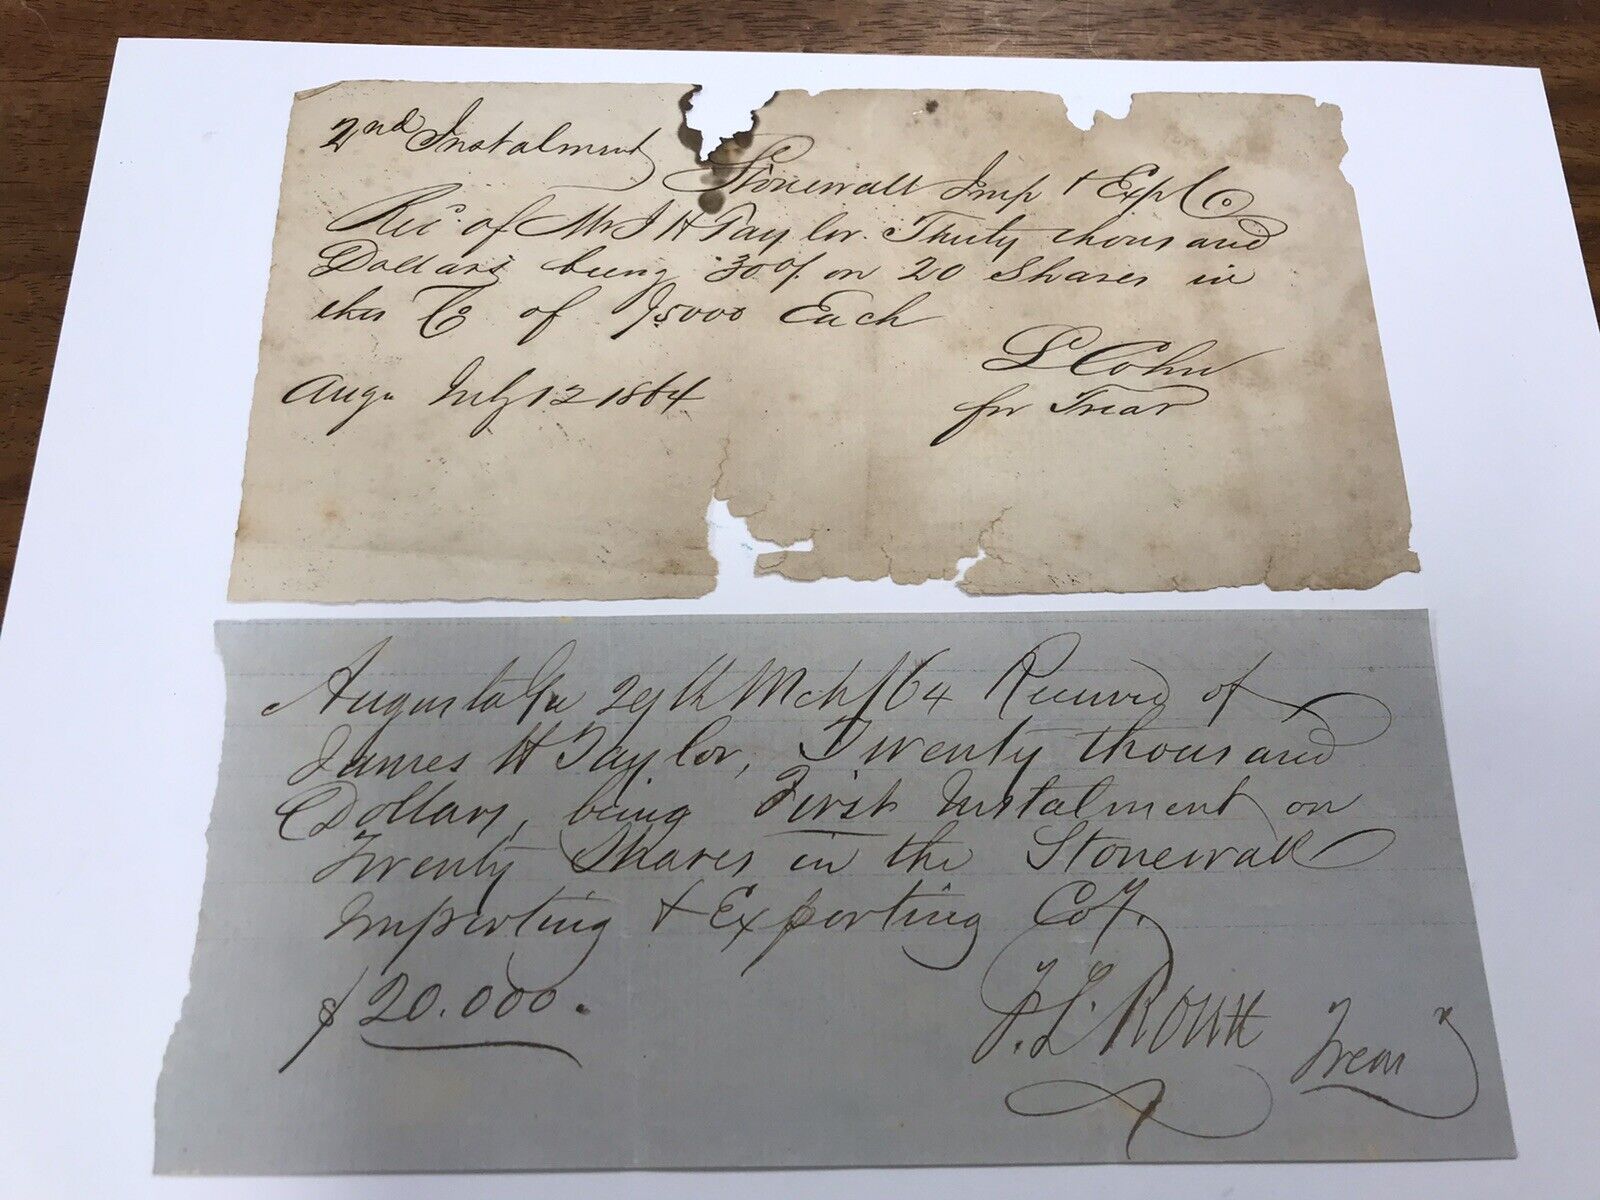 2nd Instalment
Stonewall Imp & Exp Co
Rec. of Mr J H Taylor Thirty thousand
Dollars being 30% on 20 Shares in
this Co of $5000 Each
L Cohn
for Treas
Augа July 12 1864
Augusta Ga 29th Mch /64 Received of
James H Taylor, Twenty thousand
Dollars, being First Instalment on
Twenty Shares in the Stonewall
Importing & Exporting Coy.
$20.000.
Treasr